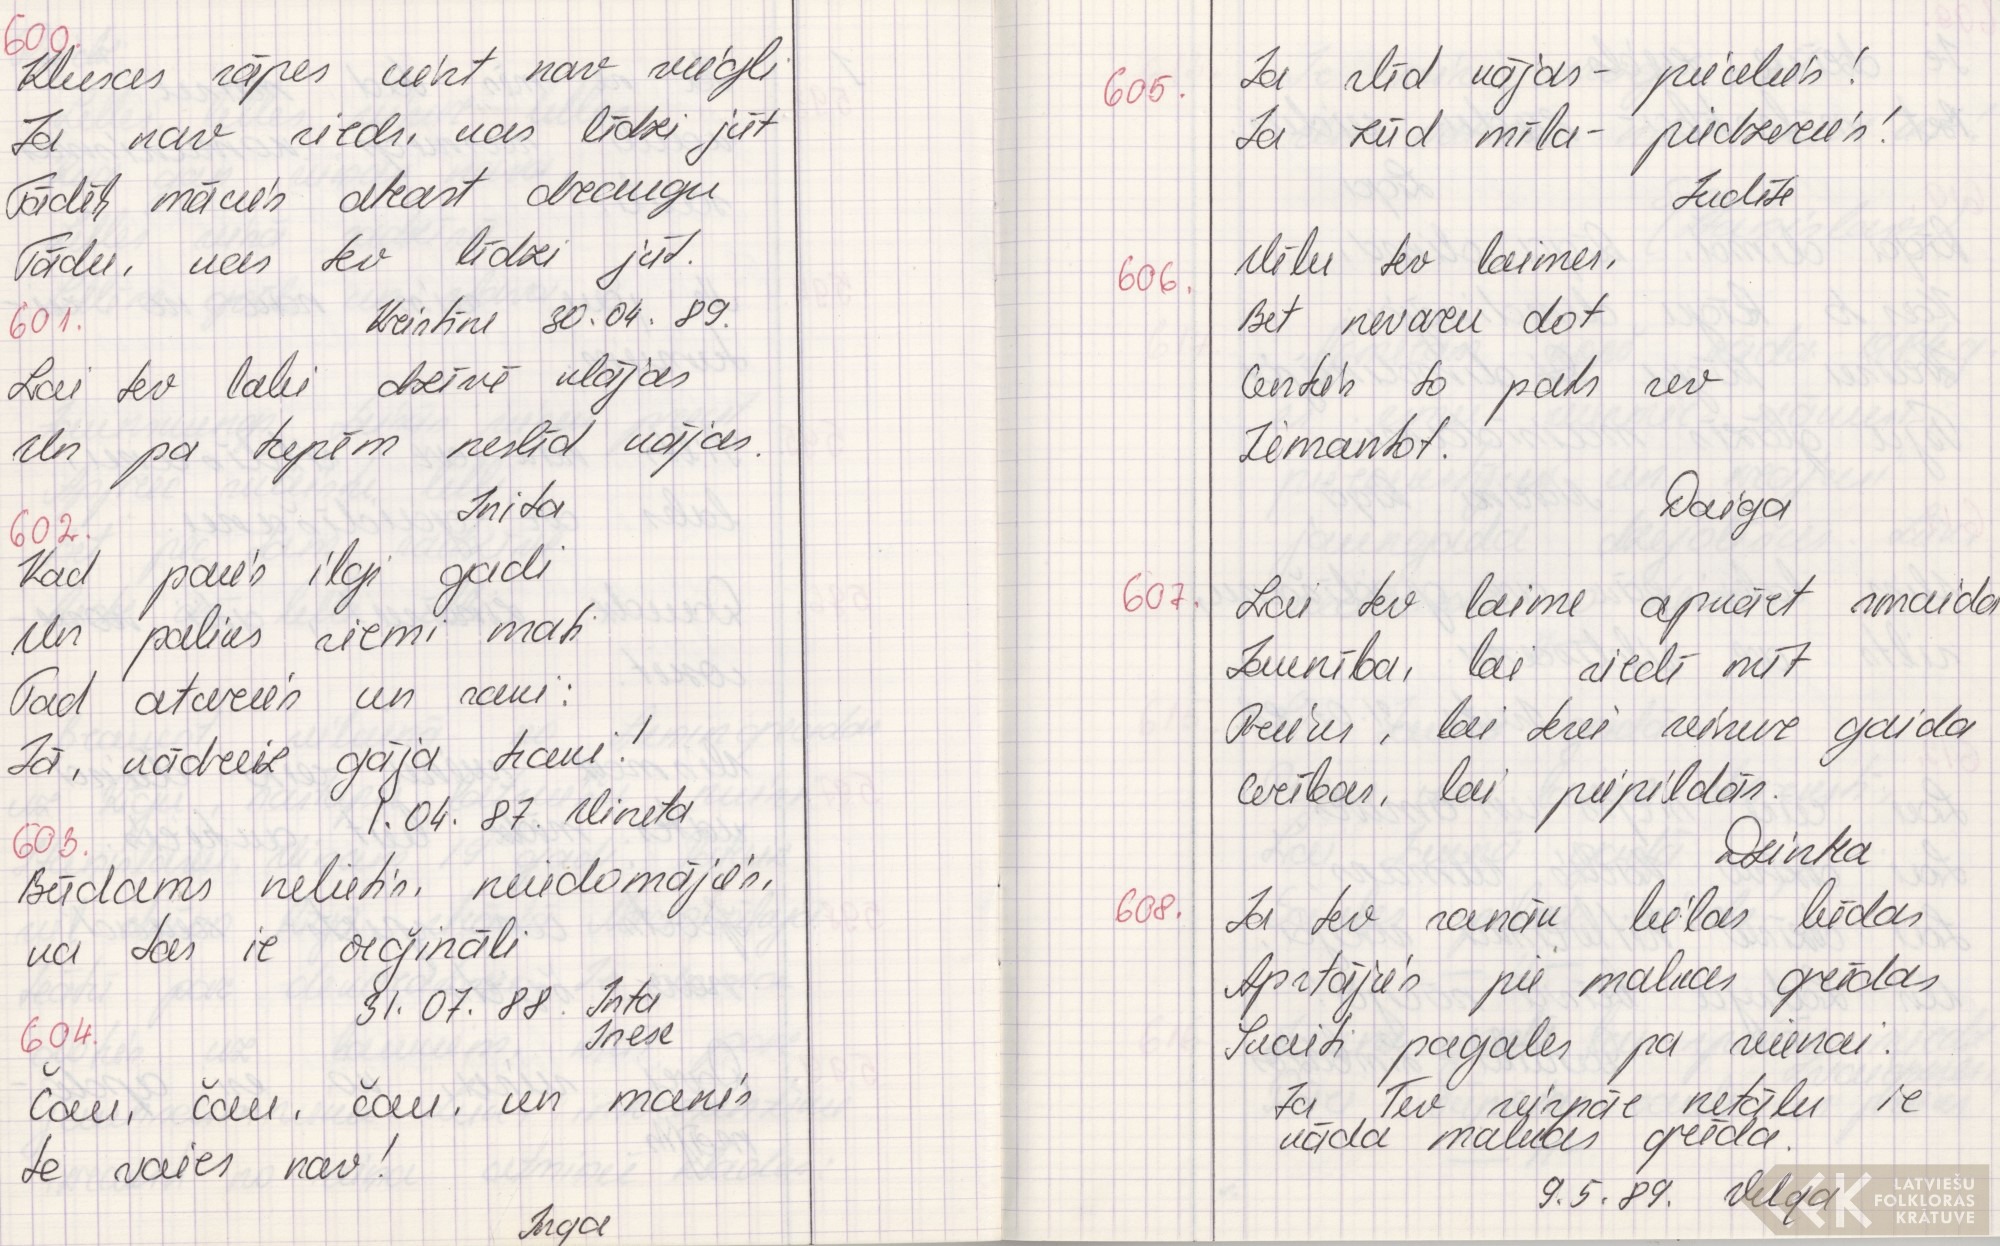 600.
Klusas sāpes ciest nav viegli
Ja nav sirds, kas līdzi jūt
Tādēļ mācies atrast draugu
Tādu, kas tev līdzi jūt.
601.
Kristīne 30.04.89.
Lai tev labi dzīvē klājas
Un pa trepēm neslīd kājas.
Inita
602.
Kad paies ilgi gadi
Un paliks sirmi mati
Tad atceries un saki:
Jā, kādreiz gāja traki!
1.04.87. Vineta
603.
Būdams nelietis, neiedomājies,
ka tas ir orģināli
31.07.88. Inta
Inese
604.
Čau, čau, čau, un manis
te vairs nav!
Inga
605.
Ja slīd kājas - piecelies!
Ja zūd mīla - piedzeries!
Judīte
606.
Vēlu tev laimes,
Bet nevaru dot
Centies to pats sev
Izmantot.
Daiga
607.
Lai tev laime apkārt smaida
Jaunība, lai sirdī mīt
Prieks, lai tevi vienmēr gaida
Cerības, lai piepildās.
Dzintra
608.
Ja tev sanāk lielas bēdas
Apstājies pie malkas grēdas
Skaiti pagales pa vienai.
Ja Tev vispār netālu ir
kāda malkas grēda.
9.5.89. Velga
LATVIEŠU
FOLKLORAS
KRĀTUVE